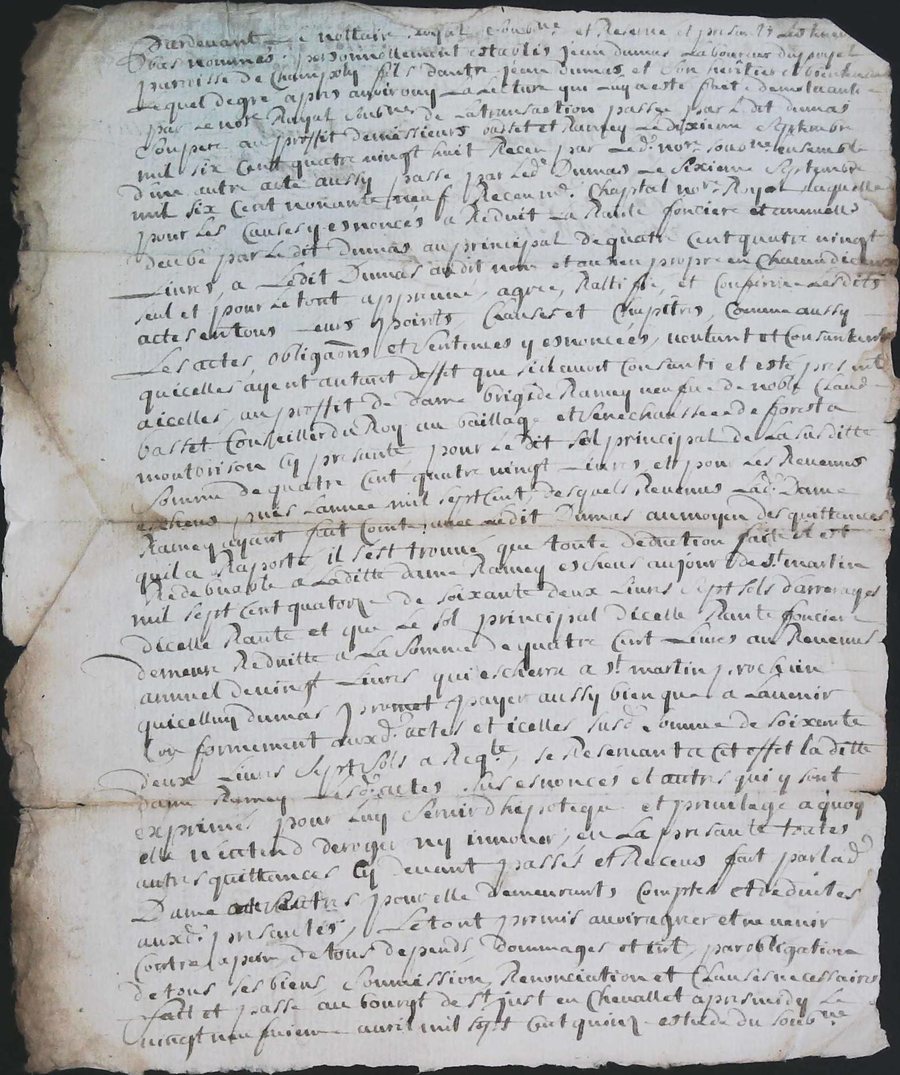 Pardevant le nottaire Royal soubne et Reservé et presents Les tesm
bas nommes, personnellement establis Jean dumas Laboureur du
parroisse de Champoly fils d'autre Jean Dumas et son heritier et bientenant
Lequel de gre apres avoir ouy La Lecture qui luy a esté faite
par Le notre Royal soubne de La transaction passée par Ledit dumas
son pere au proffit de messieurs basset et Ramey Le dixieme septembre
mil six Cent quatre vingt huit Receu par Led. nore soubne ensemble
d'une autre acte aussy passé par Led. Dumas Le sixieme septembre
mil six Cent nonante neuf Receu me. Chaptal nore. Royal Laquelle
pour Les Causes y esnoncés a Reduit La Rante fonciere et annuelle
deube par Ledit Dumas au principal de quatre Cent quatre vingt
Livres, a Ledit Dumas audit nom et au sien propre en Chacun d'iceux
seul et pour Le tout approuvé, agrée, Rattiffié, et Confirmé Lesdits
actes en tous Leurs points, Clauses et Chapitres, Comme aussy
Les actes, obligaons et sentences y esnoncées, voulant et Consantant
qu'icelles ayent autant d'effet que s'il avoit Consanti et esté present
a icelles, au proffit de dame brigide Ramey veufve de noble Claude
basset Conseiller du Roy au baillage et senechaussée de forest a
montbrison Cy presante pour Ledit sol principal de La susditte
somme de quatre Cent quatre vingt Livres, et pour Les Revenus
escheus puis L'année mil sept Cent, desquels Revenus Lad. Dame
Ramey ayant fait Compte avec Ledit Dumas au moyen des quittances
qu'il a Raporté il s'est trouvé que toute deduction faite il est
Redevable a Laditte dame Ramey escheus au jour de st martin
mil sept Cent quatorze de soixante deux Livres sept sols d'arrerages
d'icelle Rante et que Le sol principal d'icelle Rante fonciere
demeure Reduitte a La somme de quatre Cent Livres au Revenus
annuel de vingt Livres qui eschera a st martin prochain
qu'icelluy dumas promet payer aussy bien que a L'avenir
Conformement auxd. actes et icelles susd. somme de soixante
deux Livres sept sols a Reqte, se Reservant a Cet effet laditte
dame Ramey Lesd. actes sus esnoncés et autres qui y sont
exprimés pour Luy servir d'hypoteque et privilege a quoy
elle n'entend deroger ny innover, en La presante toutes
autres quittances Cy devant passés et Receus fait par lad.
Dame pour elle demeurants Comptés et deduites
auxd. presantes, Le tout promis avoir agréer et ne venir
Contre a peine de tous depends, dommages et int. par obligation
de tous ses biens, soumission, Renonciation et Clauses necessaires
fait et passé au bourgt de st just en Chevallet apres midy Le
vingt neufvieme avril mil sept Cent quinze estude du soubne.